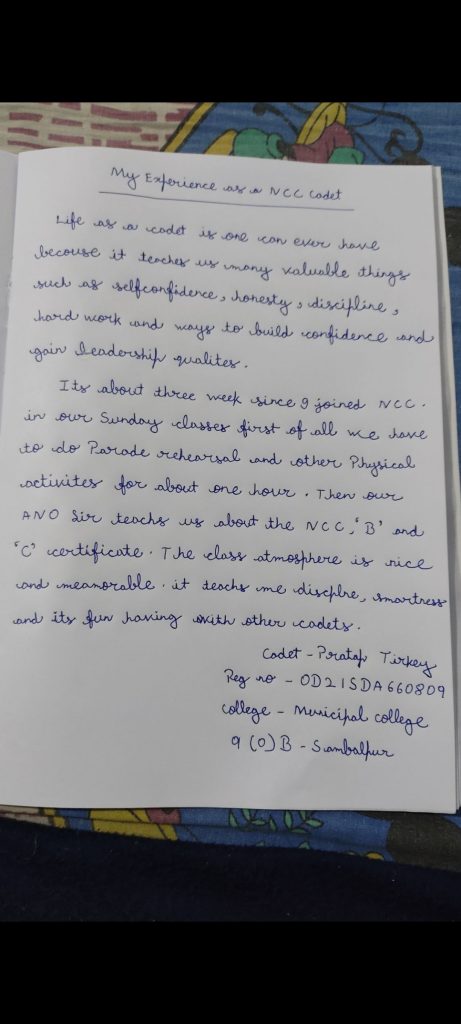 My Experience as a NCC Cadet
Life as a cadet is one can ever have
because it teaches us many valuable things
such as selfconfidence, honesty, discipline,
hard work and ways to build confidence and
gain leadership qualites.
Its about three week since I joined NCC.
in our Sunday classes first of all we have
to do Parade rehearsal and other Physical
activites for about one hour. Then our
ANO Sir teachs us about the NCC, 'B' and
'C' certificate. The class atmosphere is nice
and meamorable. it teachs me discplne, smartness
and its fun having with other cadets.
Cadet - Pratap Tirkey
Reg no - OD21SDA660809
College - Municipal college
9 (O) B - Sambalpur